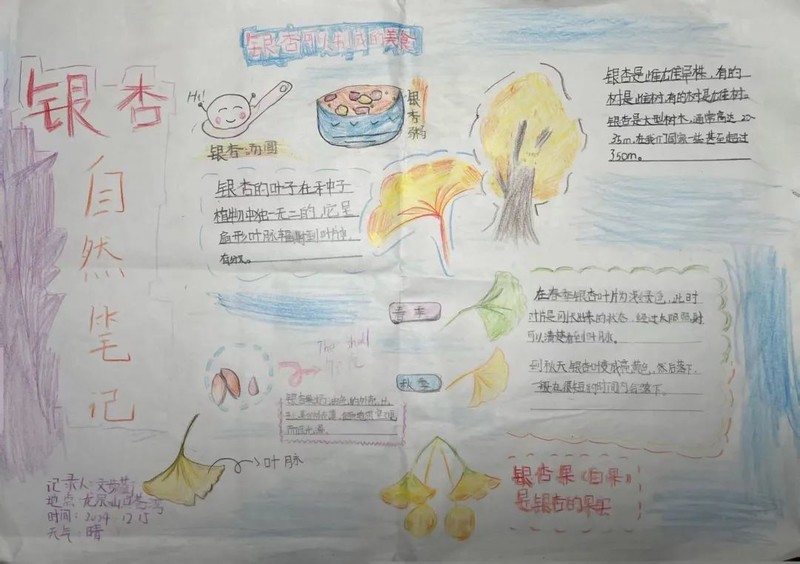 银杏可以制成的美食
银杏
自然笔记
Hi!
银杏汤圆
银杏粥
银杏是雌雄异株，有的
树是雌树，有的树是雄树。
银杏是大型树木，通常高达 20~
35m，在我们国家一些甚至超过
350m。
银杏的叶子在种子
植物中独一无二的，它呈
扇形叶脉辐射到叶片
春季
在春季银杏叶片为浅绿色，此时
可以清楚看到叶脉。
秋季
到秋天，银杏叶变成亮黄色，然后落下，
一般在很短的时间内会落下。
The shell
叶脉
银杏果《白果》
是银杏的果实
记录人：
地点：龙泉山
时间：2024.12.15
天气：晴